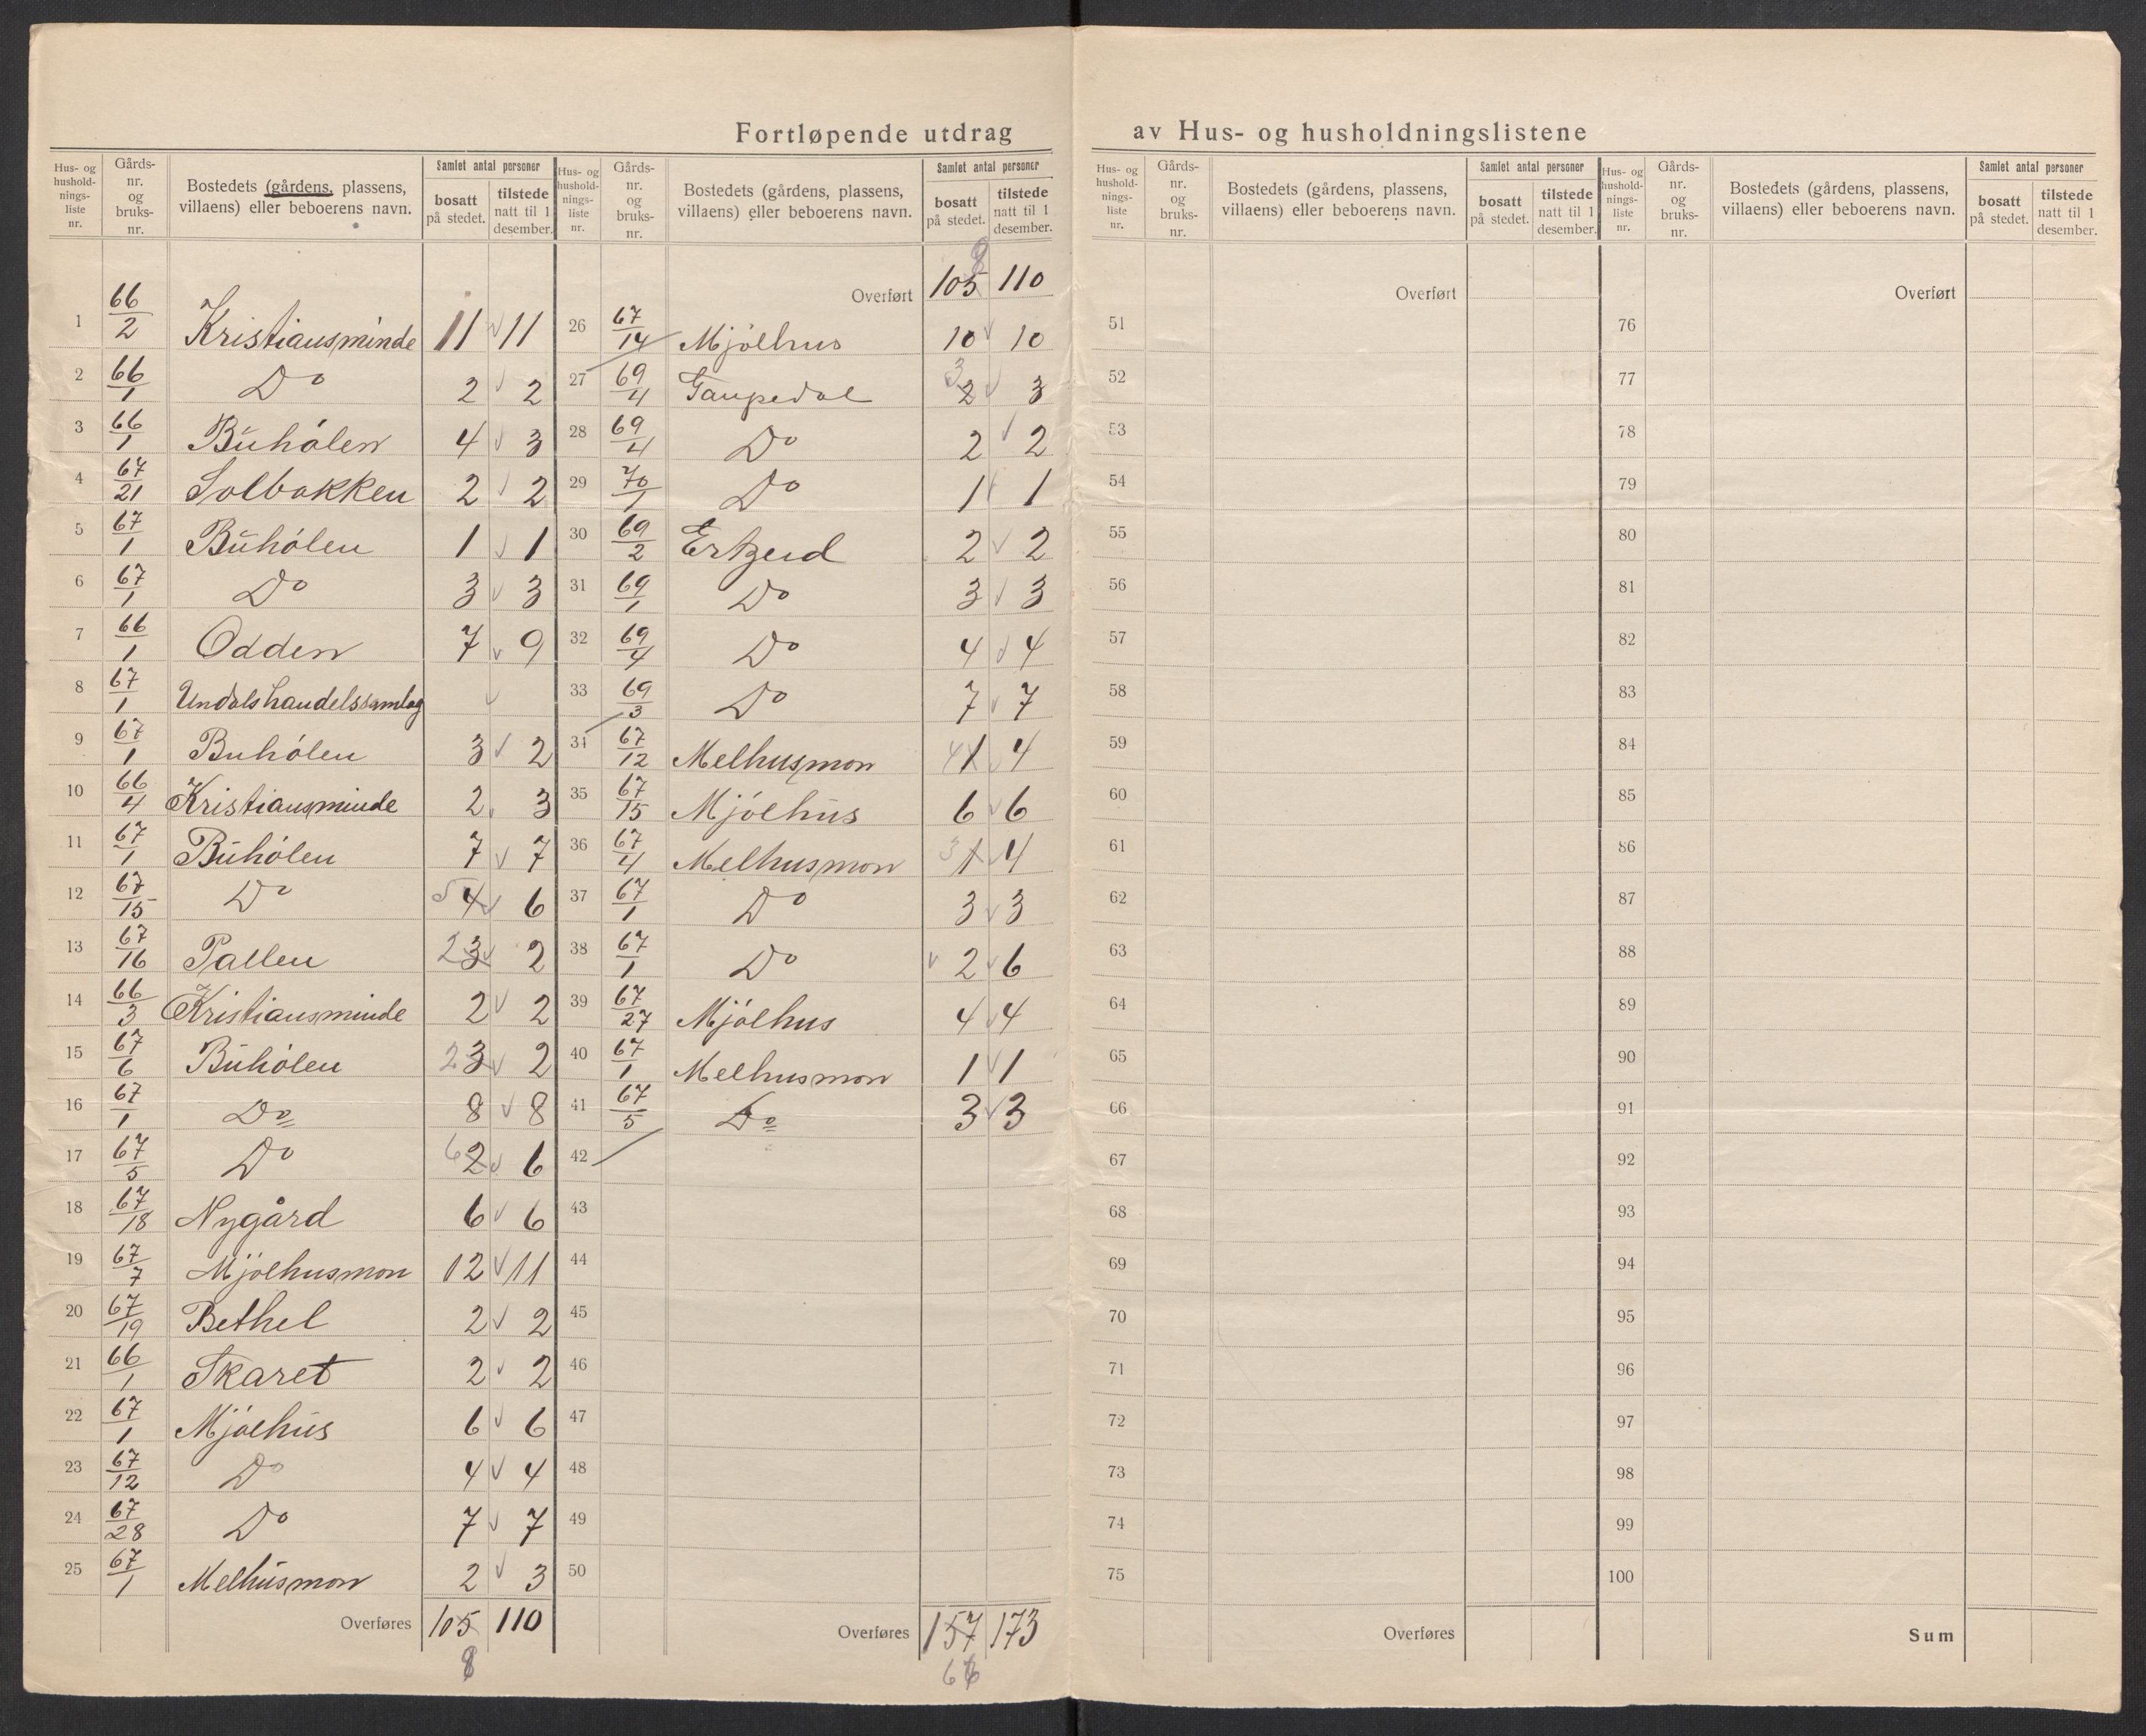 Fortløpende utdrag av Hus- og husholdningslistene
Hus- og hushold-nings-liste nr. Gårds-nr. og bruks-nr. Bostedets (gårdens, plassens, villaens) eller beboerens navn. Samlet antal personer bosatt på stedet. tilstede natt til 1 desember.
1 66/2 Kristiansminde 11 11
2 66/1 Do 2 2
3 66/1 Buhölen 4 3
4 67/21 Solbakken 2 2
5 67/1 Buhölen 1 1
6 67/1 Do 3 3
7 66/1 Odden 7 9
8 67/1 Undals handelssamlag
9 67/1 Buhölen 3 2
10 66/4 Kristiansminde 2 3
11 67/1 Buhölen 7 7
12 67/15 Do 5 4 6
13 67/16 Pallen 2 3 2
14 66/3 Kristiansminde 2 2
15 67/6 Buhölen 2 3 2
16 67/1 Do 8 8
17 67/5 Do 6 2 6
18 67/18 Nygård 6 6
19 67/7 Mjölhusmon 12 11
20 67/19 Bethel 2 2
21 66/1 Skaret 2 2
22 67/1 Mjölhus 6 6
23 67/12 Do 4 4
24 67/28 Do 7 7
25 67/1 Melhusmon 2 3
Overføres 105 110
8
Hus- og hushold-nings-liste nr. Gårds-nr. og bruks-nr. Bostedets (gårdens, plassens, villaens) eller beboerens navn. Samlet antal personer bosatt på stedet. tilstede natt til 1 desember.
8
Overført 105 110
26 67/14 Mjölhus 10 10
27 69/4 Gaupedal 3 2 3
28 69/4 Do 2 2
29 70/1 Do 1 1
30 69/2 Ertzeid 2 2
31 69/1 Do 3 3
32 69/4 Do 4 4
33 69/3 Do 7 7
34 67/12 Melhusmon 4 1 4
35 67/15 Mjölhus 6 6
36 67/4 Melhusmon 3 1 4
37 67/1 Do 3 3
38 67/1 Do 2 6
39 67/27 Mjölhus 4 4
40 67/1 Melhusmon 1 1
41 67/5 Do 3 3
42
43
44
45
46
47
48
49
50
Overføres 157 173
66
Hus- og hushold-nings-liste nr. Gårds-nr. og bruks-nr. Bostedets (gårdens, plassens, villaens) eller beboerens navn. Samlet antal personer bosatt på stedet. tilstede natt til 1 desember.
Overført
51
52
53
54
55
56
57
58
59
60
61
62
63
64
65
66
67
68
69
70
71
72
73
74
75
Overføres
Hus- og hushold-nings-liste nr. Gårds-nr. og bruks-nr. Bostedets (gårdens, plassens, villaens) eller beboerens navn. Samlet antal personer bosatt på stedet. tilstede natt til 1 desember.
Overført
76
77
78
79
80
81
82
83
84
85
86
87
88
89
90
91
92
93
94
95
96
97
98
99
100
Sum